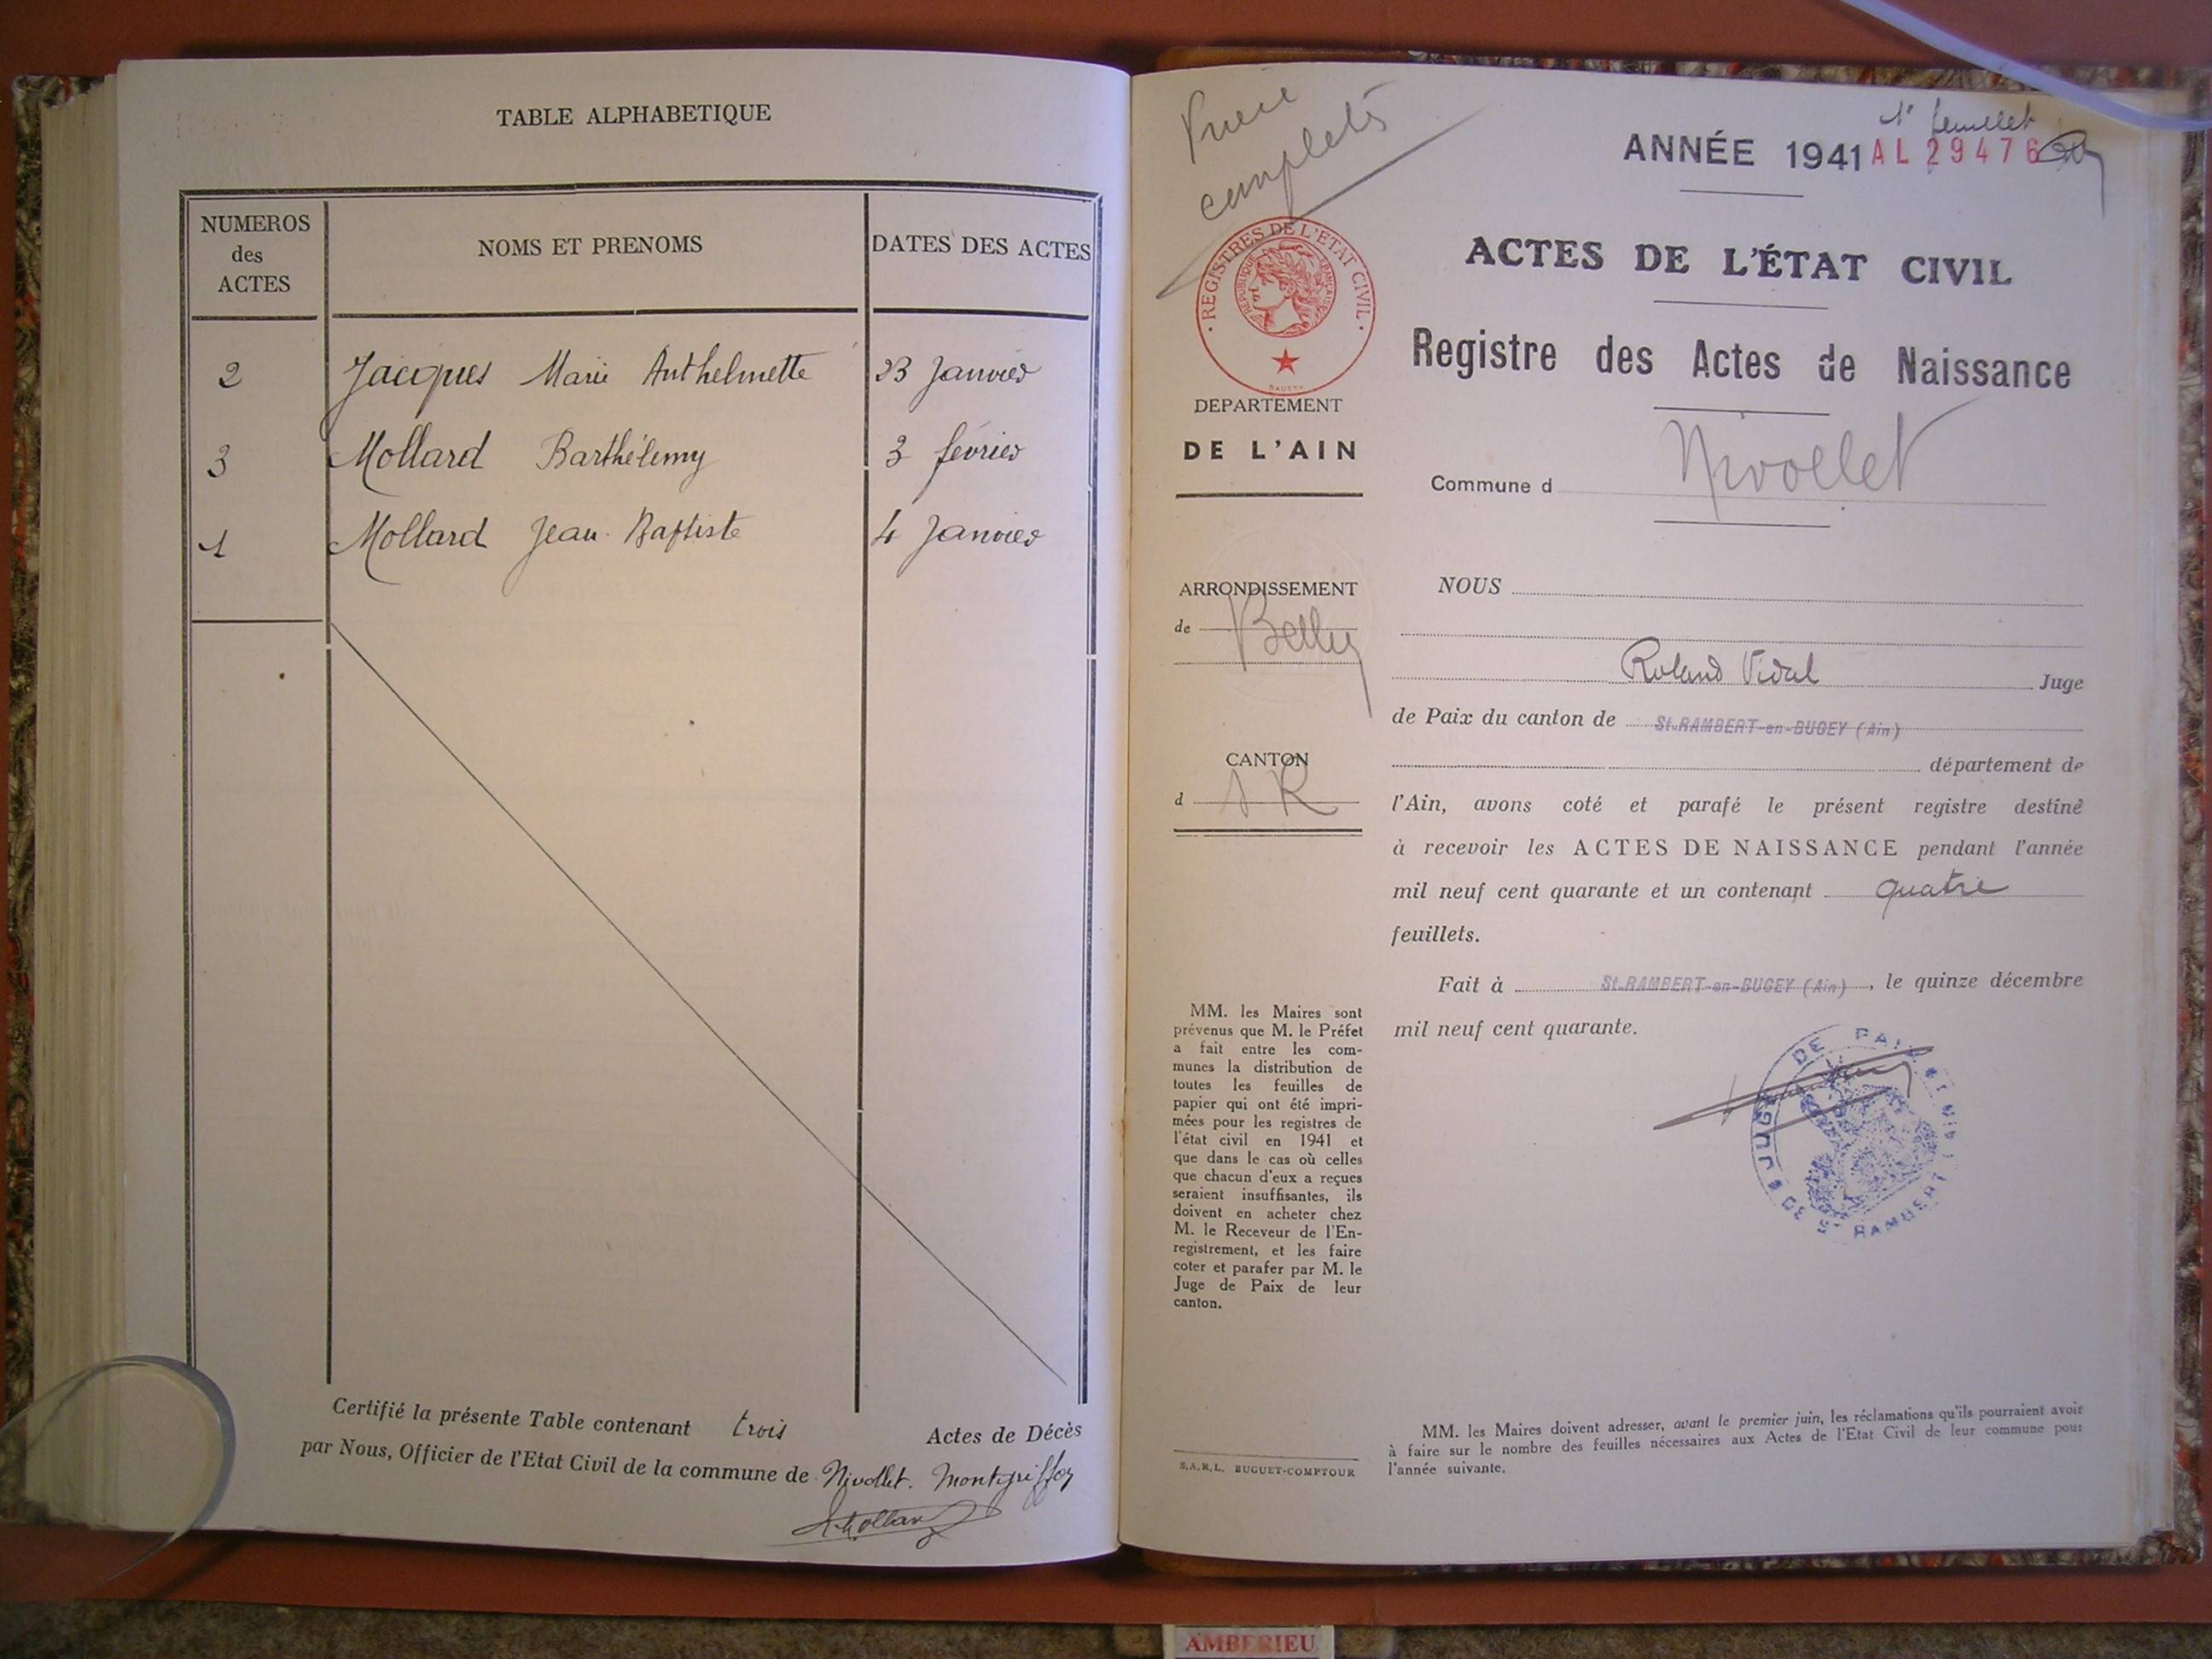 TABLE ALPHABETIQUE
NUMEROS
des
ACTES
NOMS ET PRENOMS
DATES DES ACTES
2 Jacques Marie Anthelmette 23 Janvier
3 Mollard Barthélemy 3 février
1 Mollard Jean-Baptiste 4 Janvier
Certifié la présente Table contenant trois Actes de Décès
par Nous, Officier de l'Etat Civil de la commune de Nivollet. Montgriffon
Mollard
complétés
1r feuillet
ANNÉE 1941 AL 29476
ACTES DE L'ÉTAT CIVIL
Registre des Actes de Naissance
Commune d Nivollet
· REGISTRES DE L'ETAT CIVIL ·
REPUBLIQUE FRANÇAISE
DEPARTEMENT
DE L'AIN
ARRONDISSEMENT
de Belley
CANTON
d S R
MM. les Maires sont
prévenus que M. le Préfet
a fait entre les com-
munes la distribution de
toutes les feuilles de
papier qui ont été impri-
mées pour les registres de
l'état civil en 1941 et
que dans le cas où celles
que chacun d'eux a reçues
seraient insuffisantes, ils
doivent en acheter chez
M. le Receveur de l'En-
registrement, et les faire
coter et parafer par M. le
Juge de Paix de leur
canton.
S.A.R.L. BUGUET-COMPTOUR
NOUS
Roland Vidal Juge
de Paix du canton de St-RAMBERT-en-BUGEY (Ain)
département de
l'Ain, avons coté et parafé le présent registre destiné
à recevoir les ACTES DE NAISSANCE pendant l'année
mil neuf cent quarante et un contenant quatre
feuillets.
Fait à St-RAMBERT-en-BUGEY (Ain), le quinze décembre
mil neuf cent quarante.
DE PAIX
DE St RAMBERT
MM. les Maires doivent adresser, avant le premier juin, les réclamations qu'ils pourraient avoir
à faire sur le nombre des feuilles nécessaires aux Actes de l'Etat Civil de leur commune pour
l'année suivante.
AMBERIEU